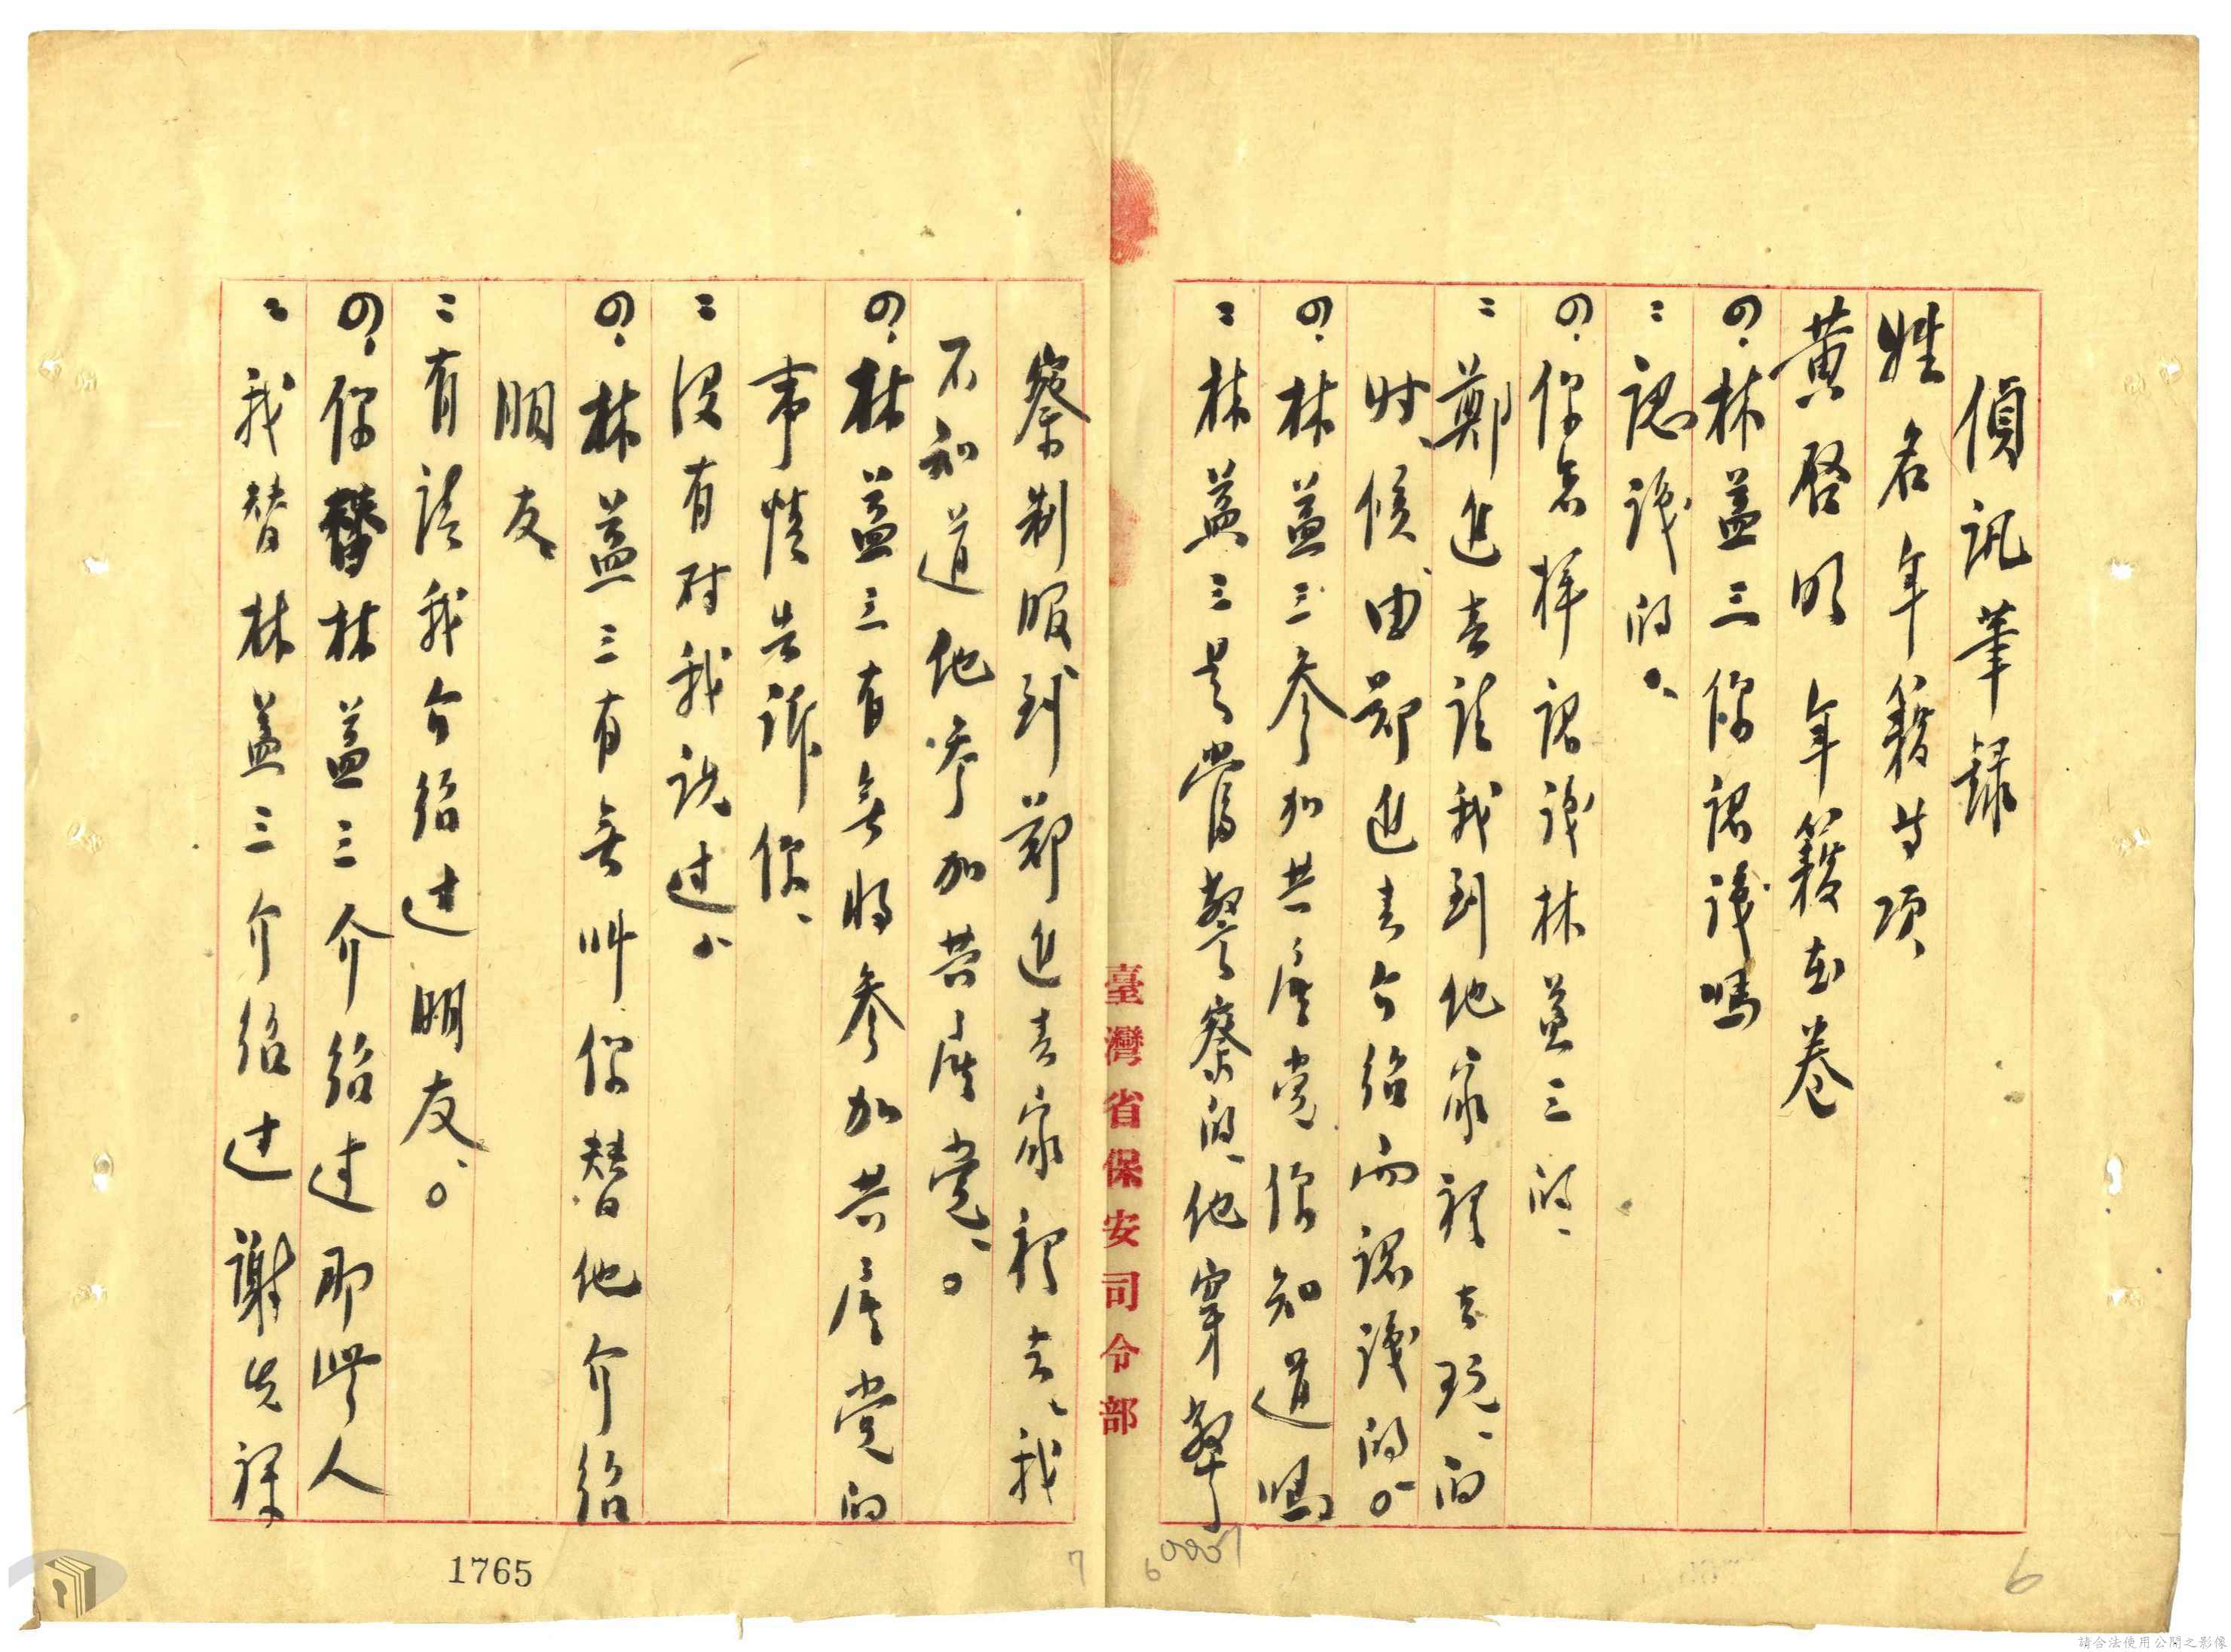 偵訊筆錄
姓名年籍等項
黃啓明 年籍在卷
の、林益三你認識嗎
：認識的。
の、你怎樣認識林益三的、
：鄭進春請我到他家裡去玩、的
时候由鄭進春介紹而認識的。
の、林益三参加共產党你知道嗎
：林益三是當警察的、他穿警
察制服到鄭進春家裡去、我
不知道他參加共產党、。
の、林益三有無將参加共產党的
事情告訴你、
：没有对我説过。
の、林益三有無叫你替他介紹
朋友
：有請我介紹过朋友、。
の、你替林益三介紹过那些人
：我替林益三介紹过謝先
臺灣省保安司令部
1765
6
7
6
請合法使用公開之影像